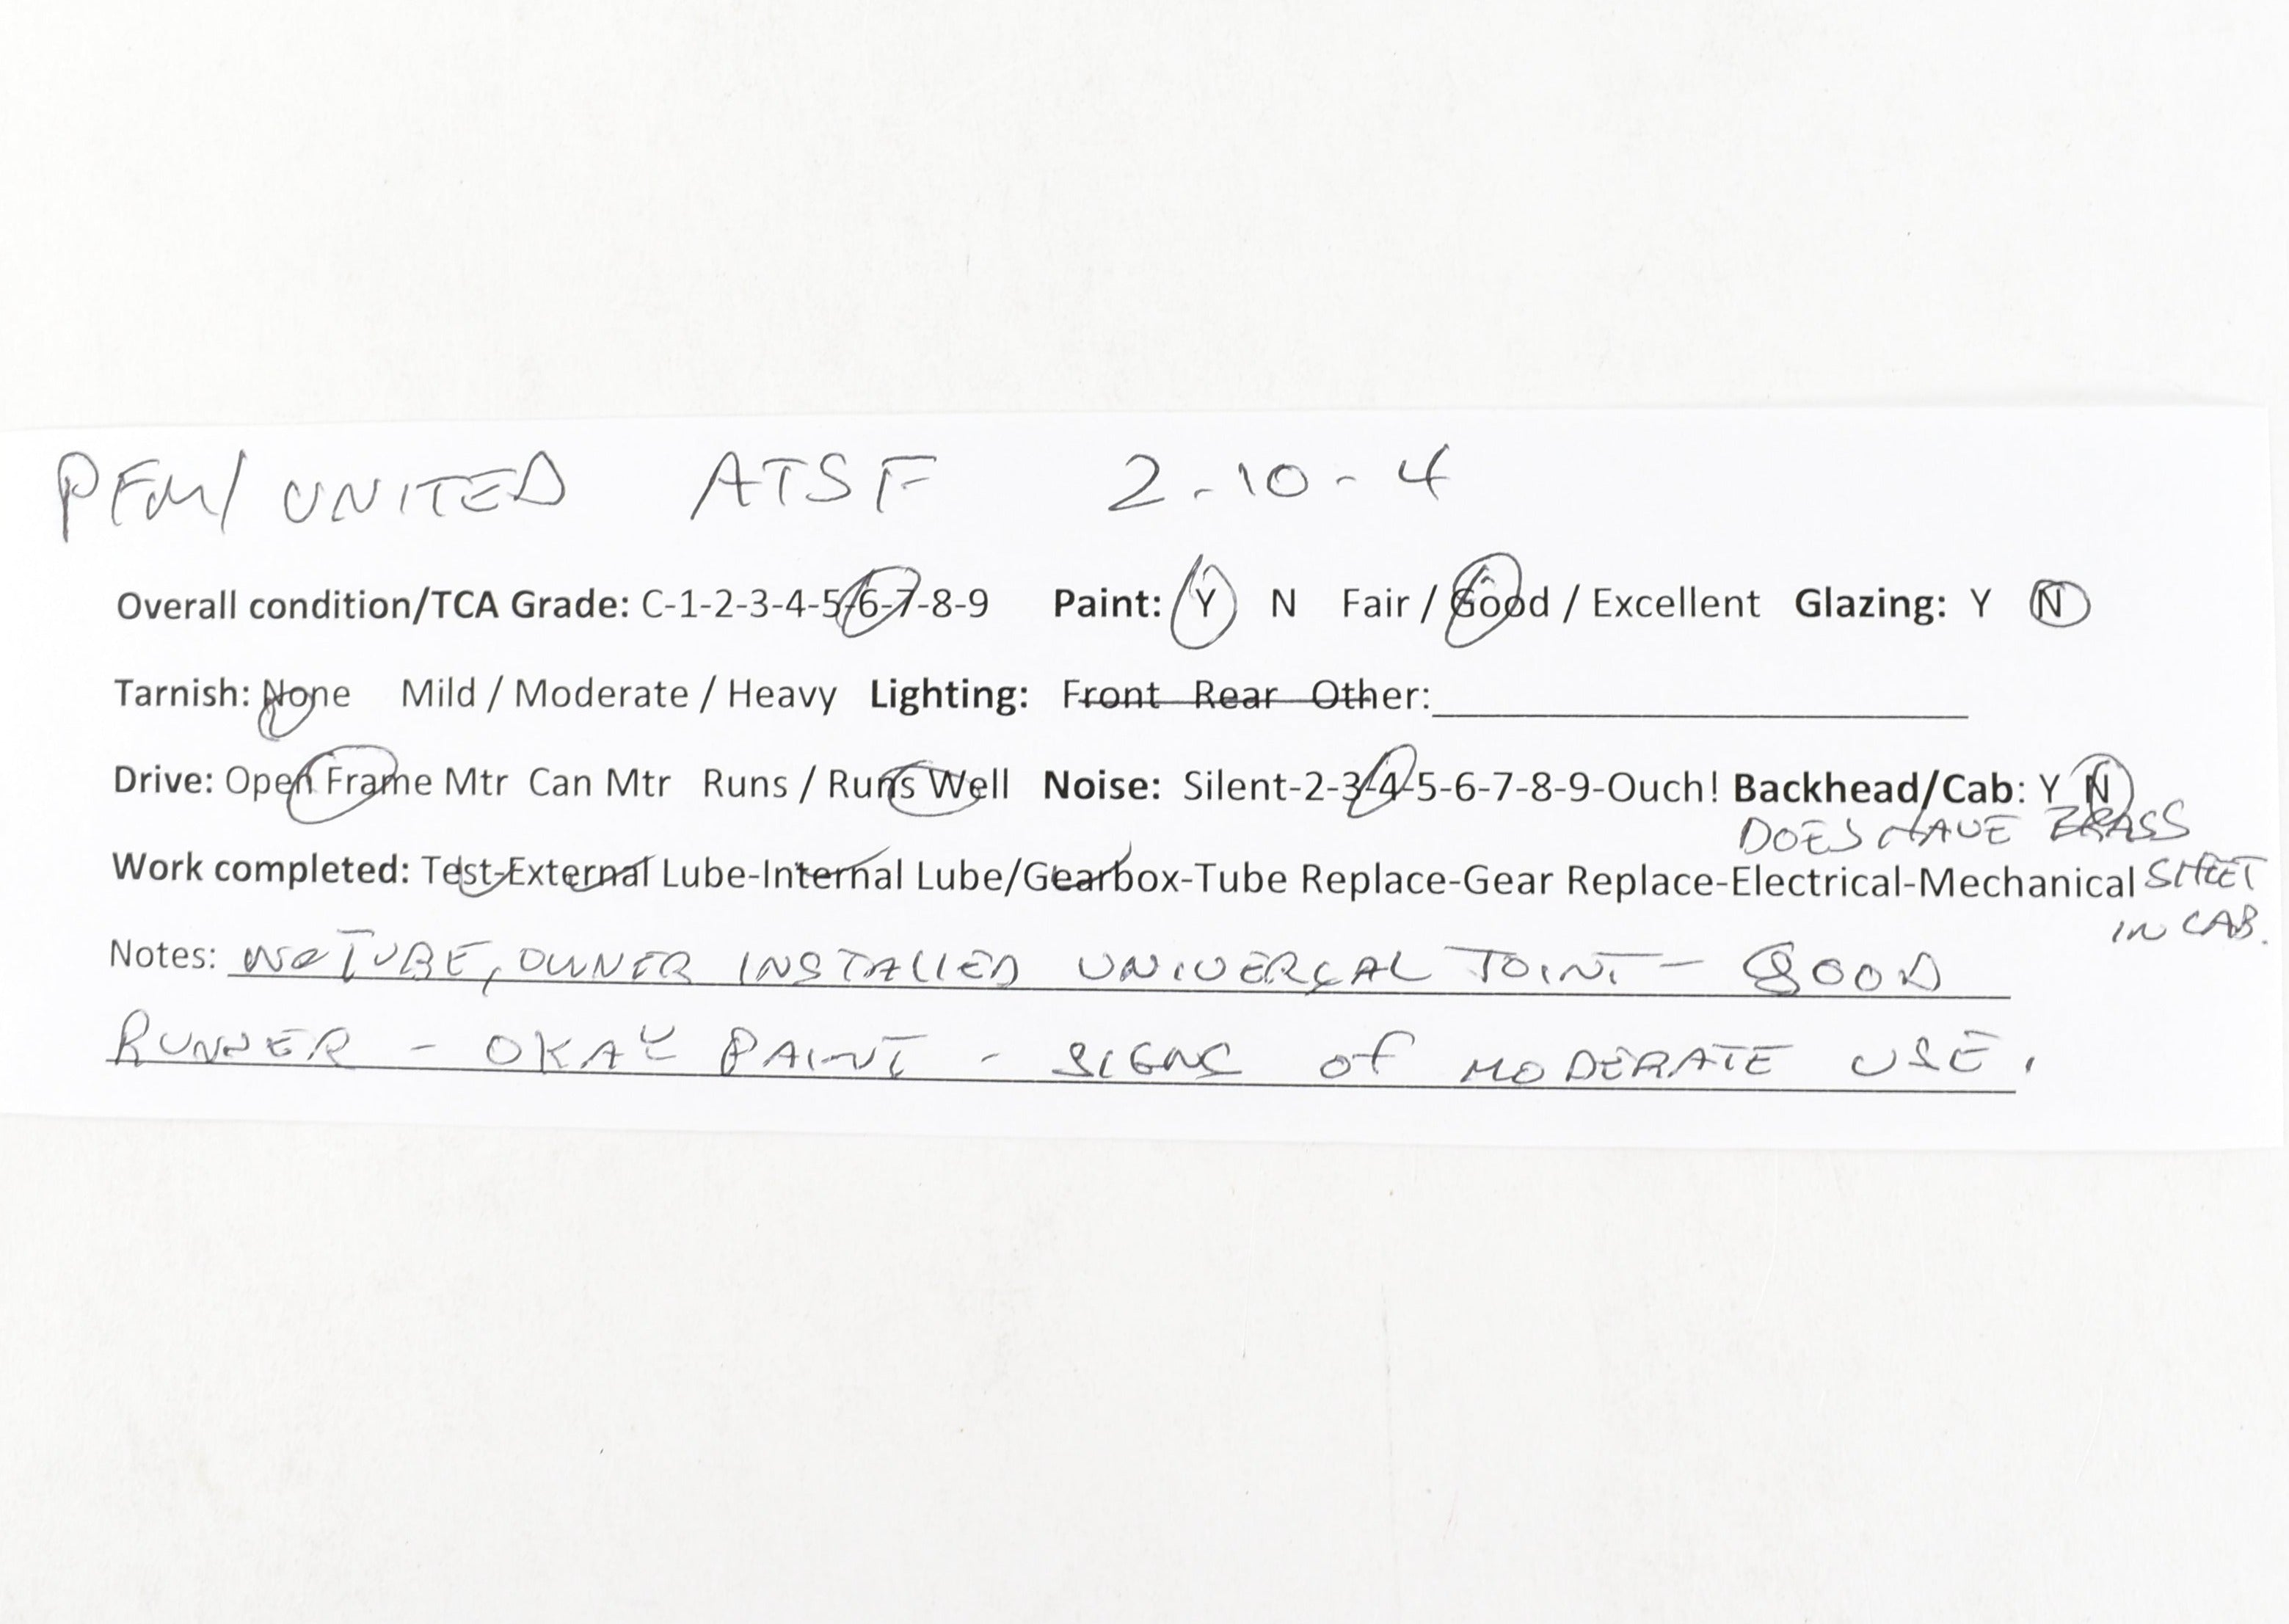 PFM/ UNITED ATSF 2-10-4
Overall condition/TCA Grade: C-1-2-3-4-5-6-7-8-9 Paint: Y N Fair / Good / Excellent Glazing: Y N
Tarnish: None Mild / Moderate / Heavy Lighting: Front Rear Other:
Drive: Open Frame Mtr Can Mtr Runs / Runs Well Noise: Silent-2-3-4-5-6-7-8-9-Ouch! Backhead/Cab: Y N
DOES HAVE BRASS
Work completed: Test-External Lube-Internal Lube/Gearbox-Tube Replace-Gear Replace-Electrical-Mechanical SHEET
IN CAB.
Notes: NO TUBE, OWNER INSTALLED UNIVERSAL JOINT - GOOD
RUNNER - OKAY PAINT - SIGNS OF MODERATE USE.